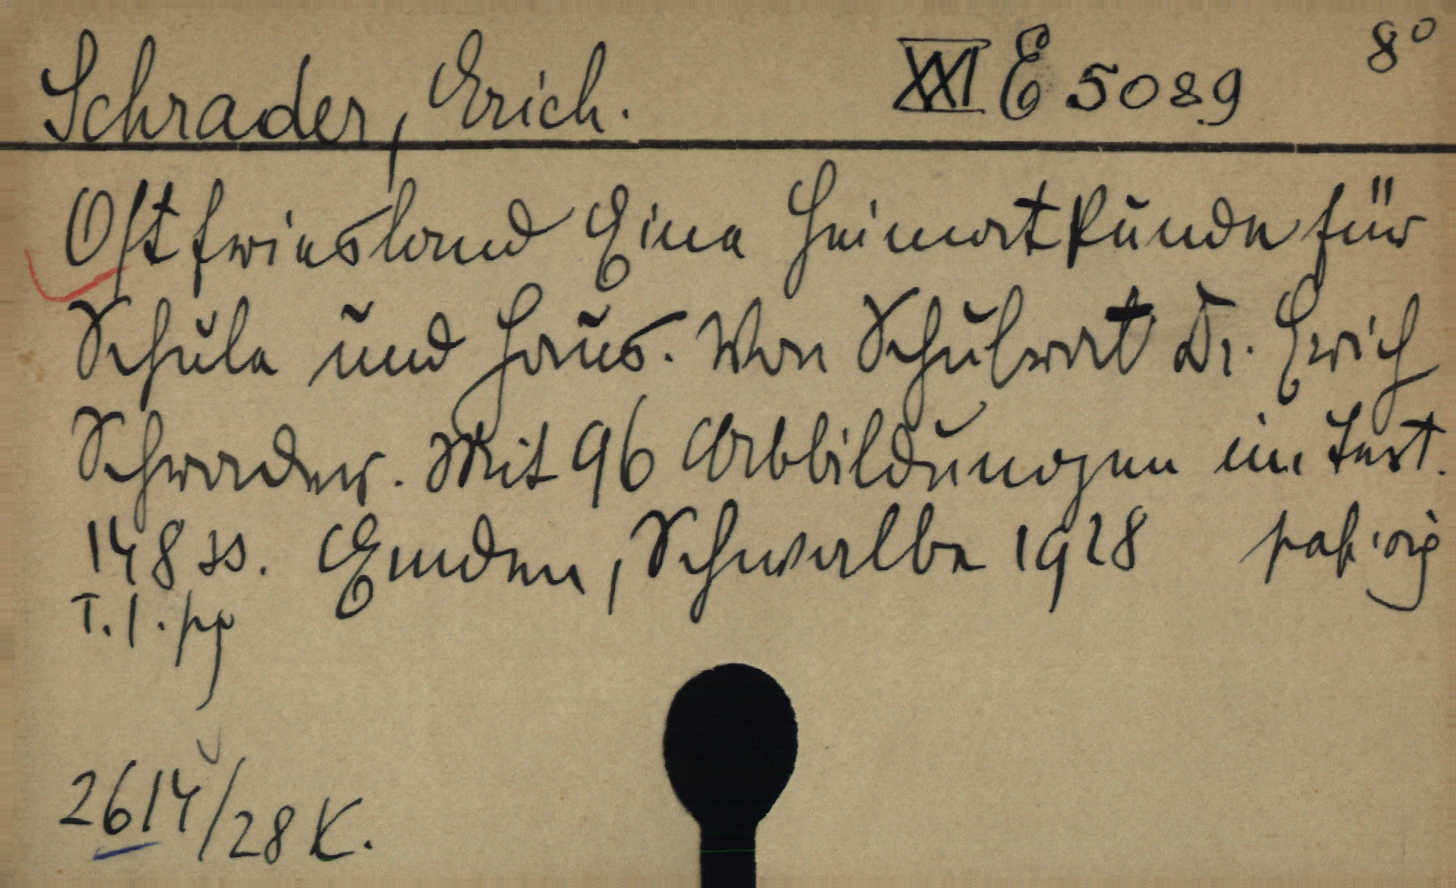 Schrader, Erich. XXI E 5089 8°
Ostfriesland Eine Heimatkunde für
Schule und Haus. Von Schulrat Dr. Erich
Schrader. Mit 96 Abbildungen im Text.
148 ss. Emden, Schwalbe 1928
T.1. pp
2614/28 K.